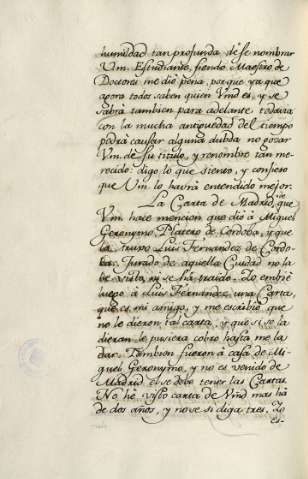 humildad tan profunda de se nombrar
Vm. Estudiante, siendo Maestro de
Doctores me dio pena, porque ya que
agora todos saben quien Vmd es, y se
sabrà tambien para adelante todavia
con la mucha antiguedad del tiempo
podrà causar alguna dubda no gozar
Vm. de su titulo, y renombre tan me-
recido: digo lo que siento, y confieso
que Vm. lo havrà entendido mejor.
La Carta de Madrid, de que
Vm. hace mencion que diò à Miguel
Geronymo Platero de Cordoba, y que
la trujo Luis Fernandez de Cordo-
ba, Jurado de aquella Ciudad no la
he visto, ni se hà traido. Yo embiè
luego à Luis Fernandez, una Carta,
que es mi amigo, y me escribiò que
no le dieron tal carta, y que si se la
dieran le pusiera cobro hasta me la
dar. Tambien fueron à casa de Mi-
guel Geronymo, y no es venido de
Madrid el se debe tener las Cartas.
No hè visto carta de Vmd mas hà
de dos años, y no se si diga tres. Yo
es-